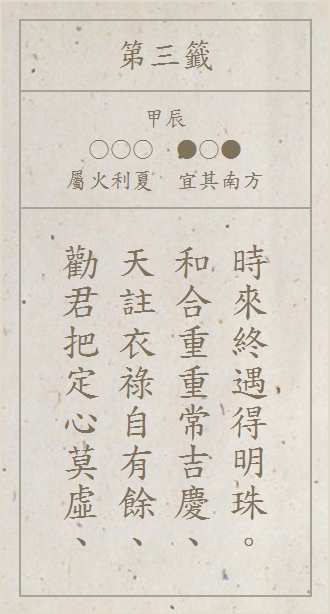 第三籤
甲辰
○○○ ●○●
屬火利夏 宜其南方
勸君把定心莫虛、
天註衣祿自有餘、
和合重重常吉慶、
時來終遇得明珠。